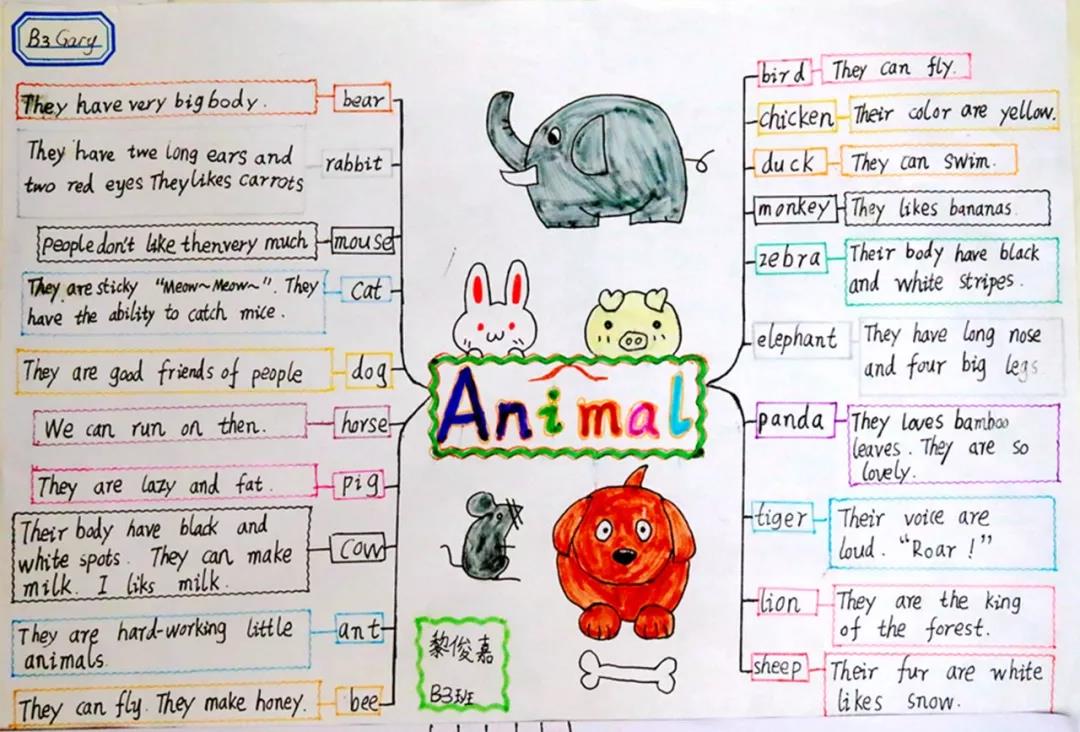 B3 Gary
They have very big body.
bear
They have twe long ears and
two red eyes They likes carrots
rabbit
people don't like then very much
mouse
They are sticky "Meow~Meow~". They
have the ability to catch mice.
cat
They are good friends of people
dog
We can run on then.
horse
They are lazy and fat.
pig
Their body have black and
white spots. They can make
milk. I liks milk.
cow
They are hard-working little
animals.
ant
They can fly. They make honey.
bee
Animal
黎俊嘉
B3班
bird
They can fly.
chicken
Their color are yellow.
duck
They can swim.
monkey
They likes bananas.
zebra
Their body have black
and white stripes.
elephant
They have long nose
and four big legs.
panda
They loves bamboo
leaves. They are so
lovely.
tiger
Their voice are
loud. "Roar!"
lion
They are the king
of the forest.
sheep
Their fur are white
likes snow.